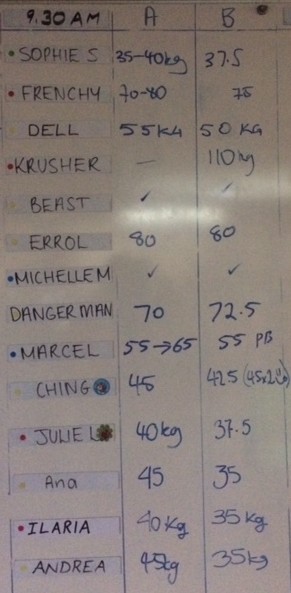 9.30 AM A B
SOPHIE S 35-40kg 37.5
FRENCHY 70-80 75
DELL 55KG 50 KG
KRUSHER — 110kg
BEAST ✓ ✓
ERROL 80 80
MICHELLE M ✓ ✓
DANGERMAN 70 72.5
MARCEL 55→65 55 PB
CHING 45 42.5
JULIE L 40kg 37.5
Ana 45 35
ILARIA 40Kg 35kg
ANDREA 45kg 35kg